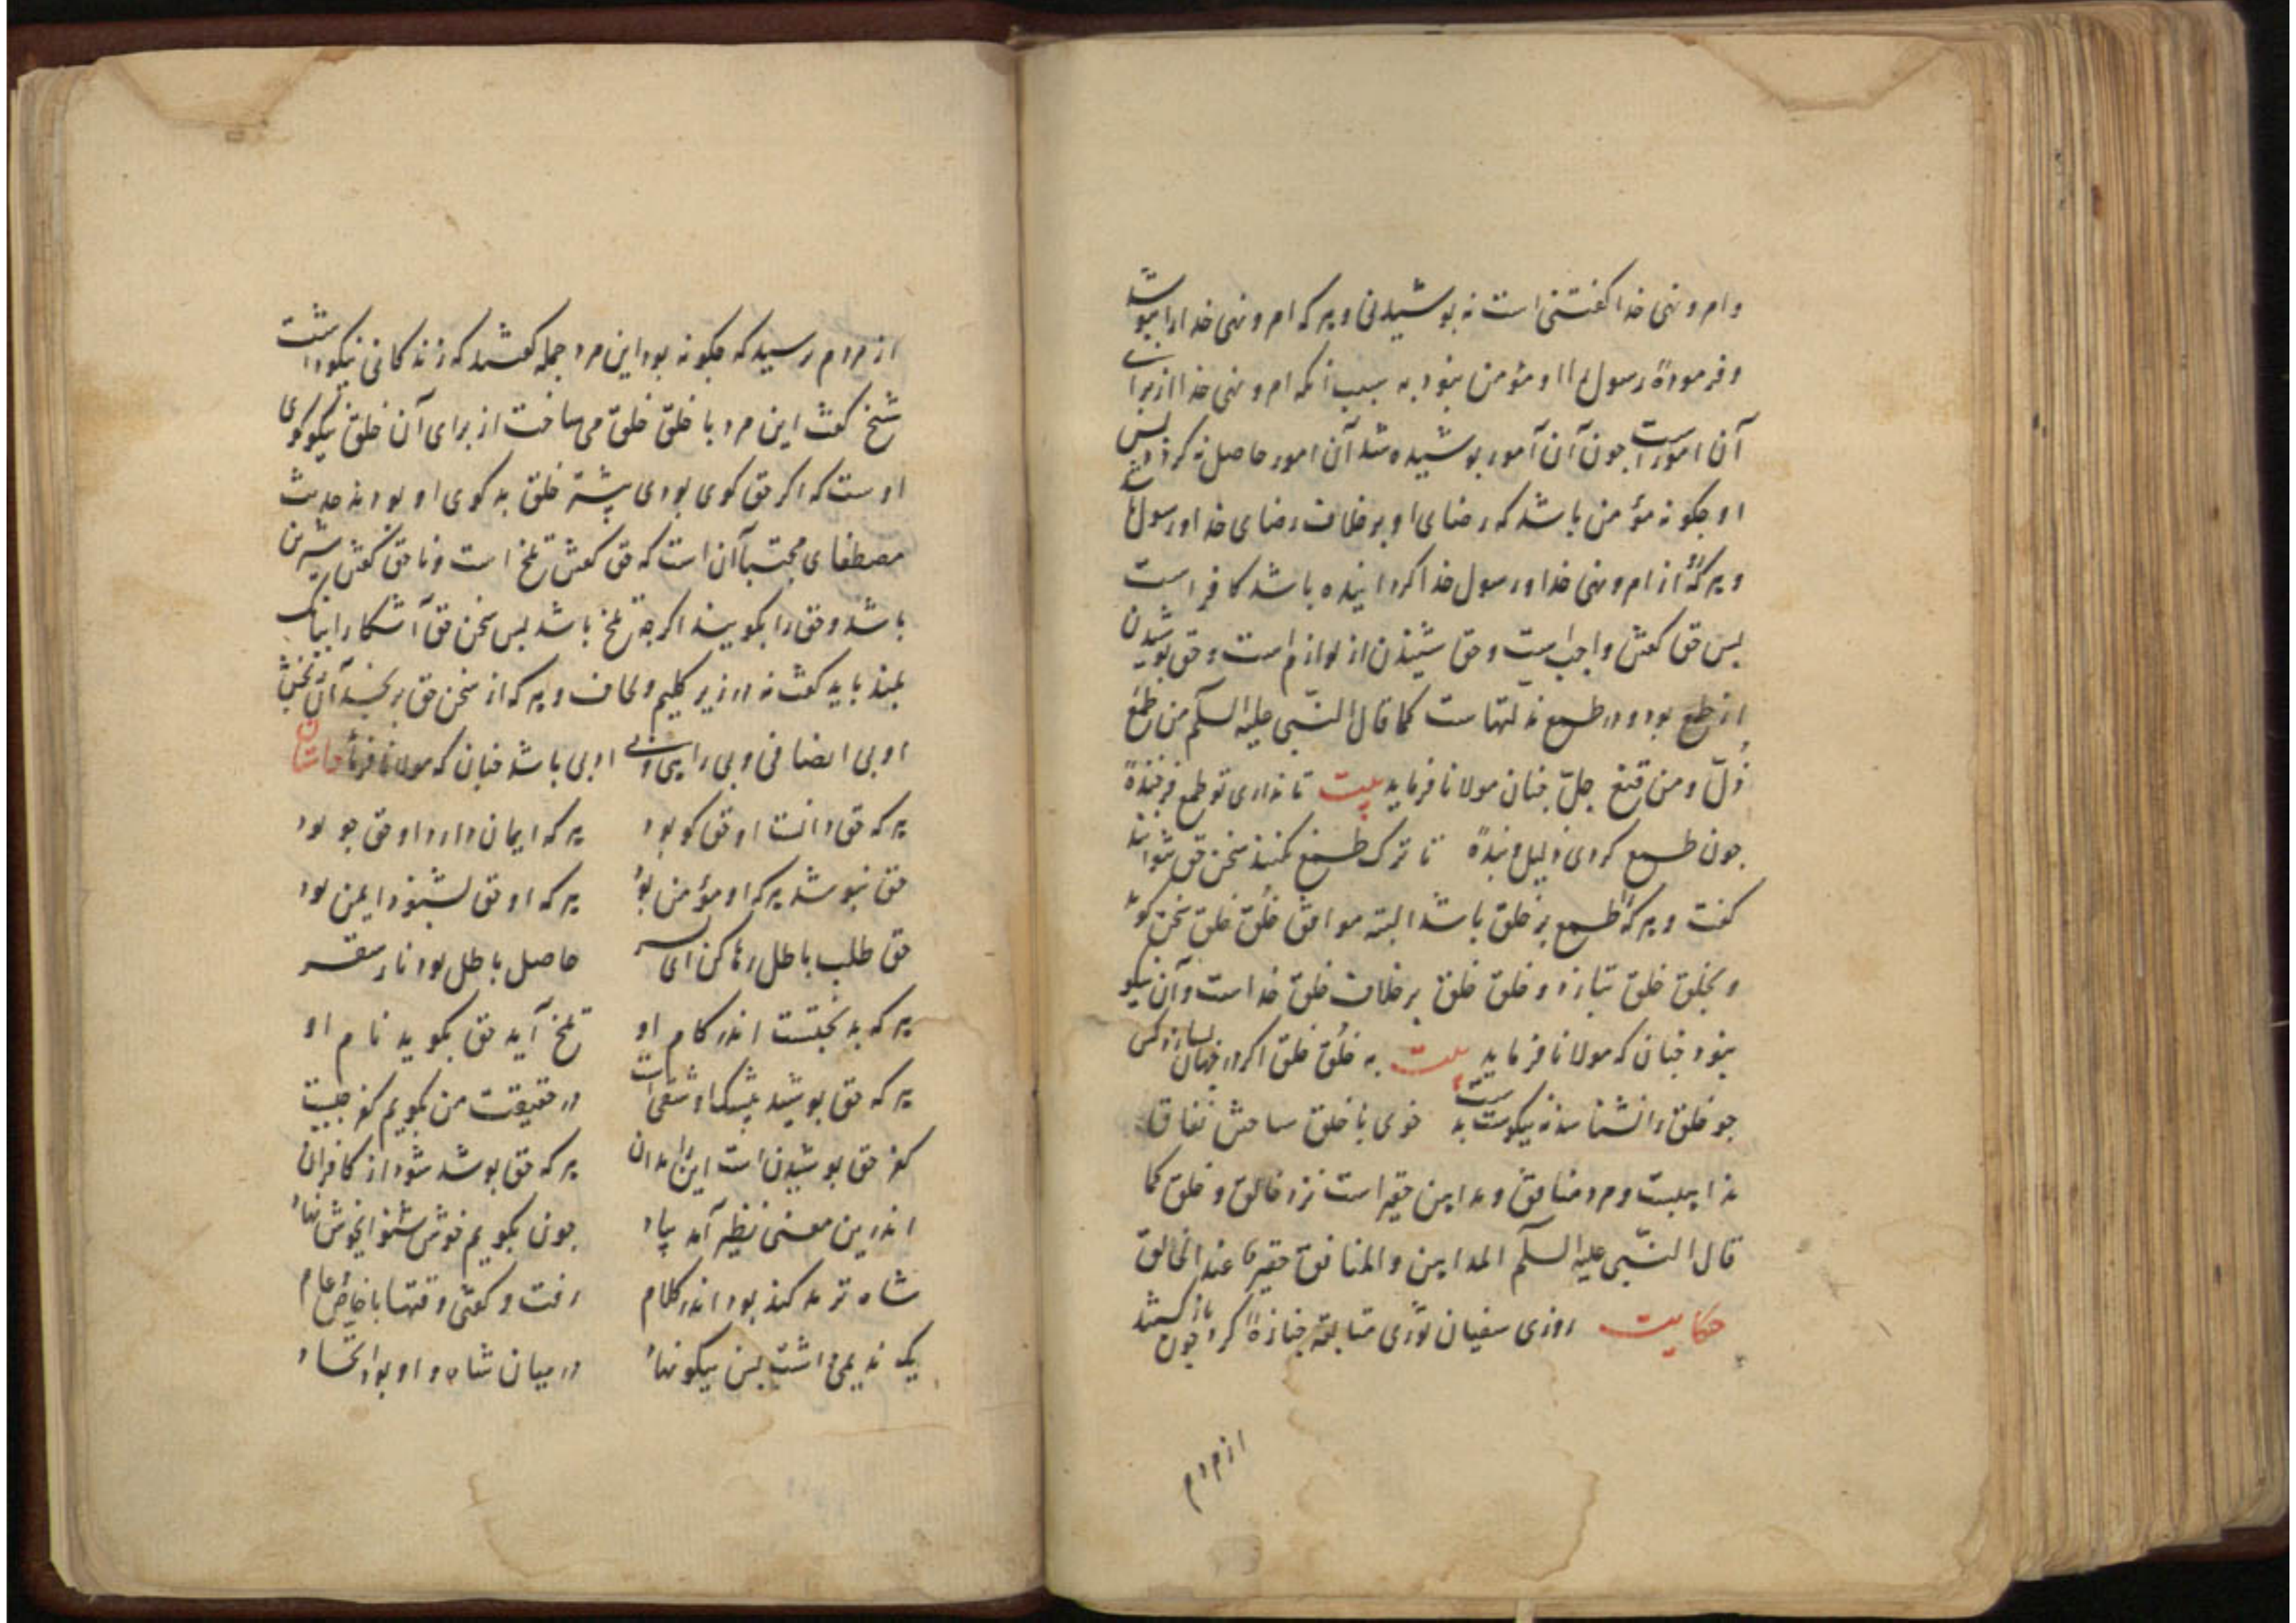 و امر و نهی خدا گفتنی است نه پوشیدنی و هر که امر و نهی خدا را بپوشد
و فرموده رسول را او مؤمن نبود به سبب آنکه امر و نهی خدا از برای
آن امورست چون آن امور پوشیده شد آن امور حاصل نه کردد پس
او چکونه مؤمن باشد که رضای او بر خلاف رضای خدا و رسول
و هر که از امر و نهی خدا و رسول خدا کردانیده باشد کافر است
پس حق کفتن واجب است و حق شنیدن از لوازم است و حق پوشیدن
از طمع بود و در طمع مذلتهاست کما قال النبی علیه السلام من طمع
ذل و من قنع جل چنان مولانا فرماید بیت تا نداری تو طمع فرخنده
چون طمع کردی ذلیل و بنده تا ترک طمع نکند سخن حق نتواند
کفت و هر که طمع بر خلق باشد البته موافق خلق خلق سخن کوید
و بخلق خلق سازد و خلق خلق بر خلاف خلق خداست و آن نیکو
نبود چنان که مولانا فرماید بیت به خلق خلق اکر در جهان بسازد کس
چو خلق را نشناسد نه نیکوست به خوی با خلق ساختن نفاق
مداهنیست و مرد منافق و مداهن حقیر است نزد خالق و خلق کما
قال النبی علیه السلام المداهن و المنافق حقیر عند الخالق
حکایت روزی سفیان ثوری متابعه جنازه کرد چون باز کشتند
از مردم
از مردم پرسید که چکونه بود این مرد جمله کفتند که زندکانی نیکو داشت
شیخ کفت این مرد با خلق خلق می ساخت از برای آن خلق نیکو کوی
اوست که اکر حق کوی بودی بیشتر خلق بد کوی او بودند حدیث
مصطفای مجتبا آن است که حق کفتن تلخ است و ناحق کفتن شیرین
باشد و حق را بکویند اکرچه تلخ باشد پس سخن حق آشکارا ببانک
بلند باید کفت نه در زیر کلیم و لحاف و هر که از سخن حق برنجد آن رنجش
او بی انصافی و بی راهی و بی ادبی باشد چنان که مولانا فرماید داستان
هر که حق دانست او حق کو بود هر که ایمان دارد او حق جو بود
حق نپوشد هر که او مؤمن بود هر که او حق بشنود ایمن بود
حق طلب باطل رها کن ای پسر حاصل باطل بود نار سقر
هر که بدبختست اندر کام او تلخ آید حق بکوید نام او
هر که حق پوشید بیشک او شقی است در حقیقت من بکویم کفر چیست
کفر حق پوشیدن است این را بدان هر که حق پوشد شود از کافران
اندرین معنی نظیر آمد بیاد چون بکویم خوش شنو ای خوش نهاد
شاه ترمد کند بود اندر کلام رفت و کفتی وقتها با خاص و عام
یک ندیمی داشت بس نیکو نهاد در میان شاه و او بود اتحاد